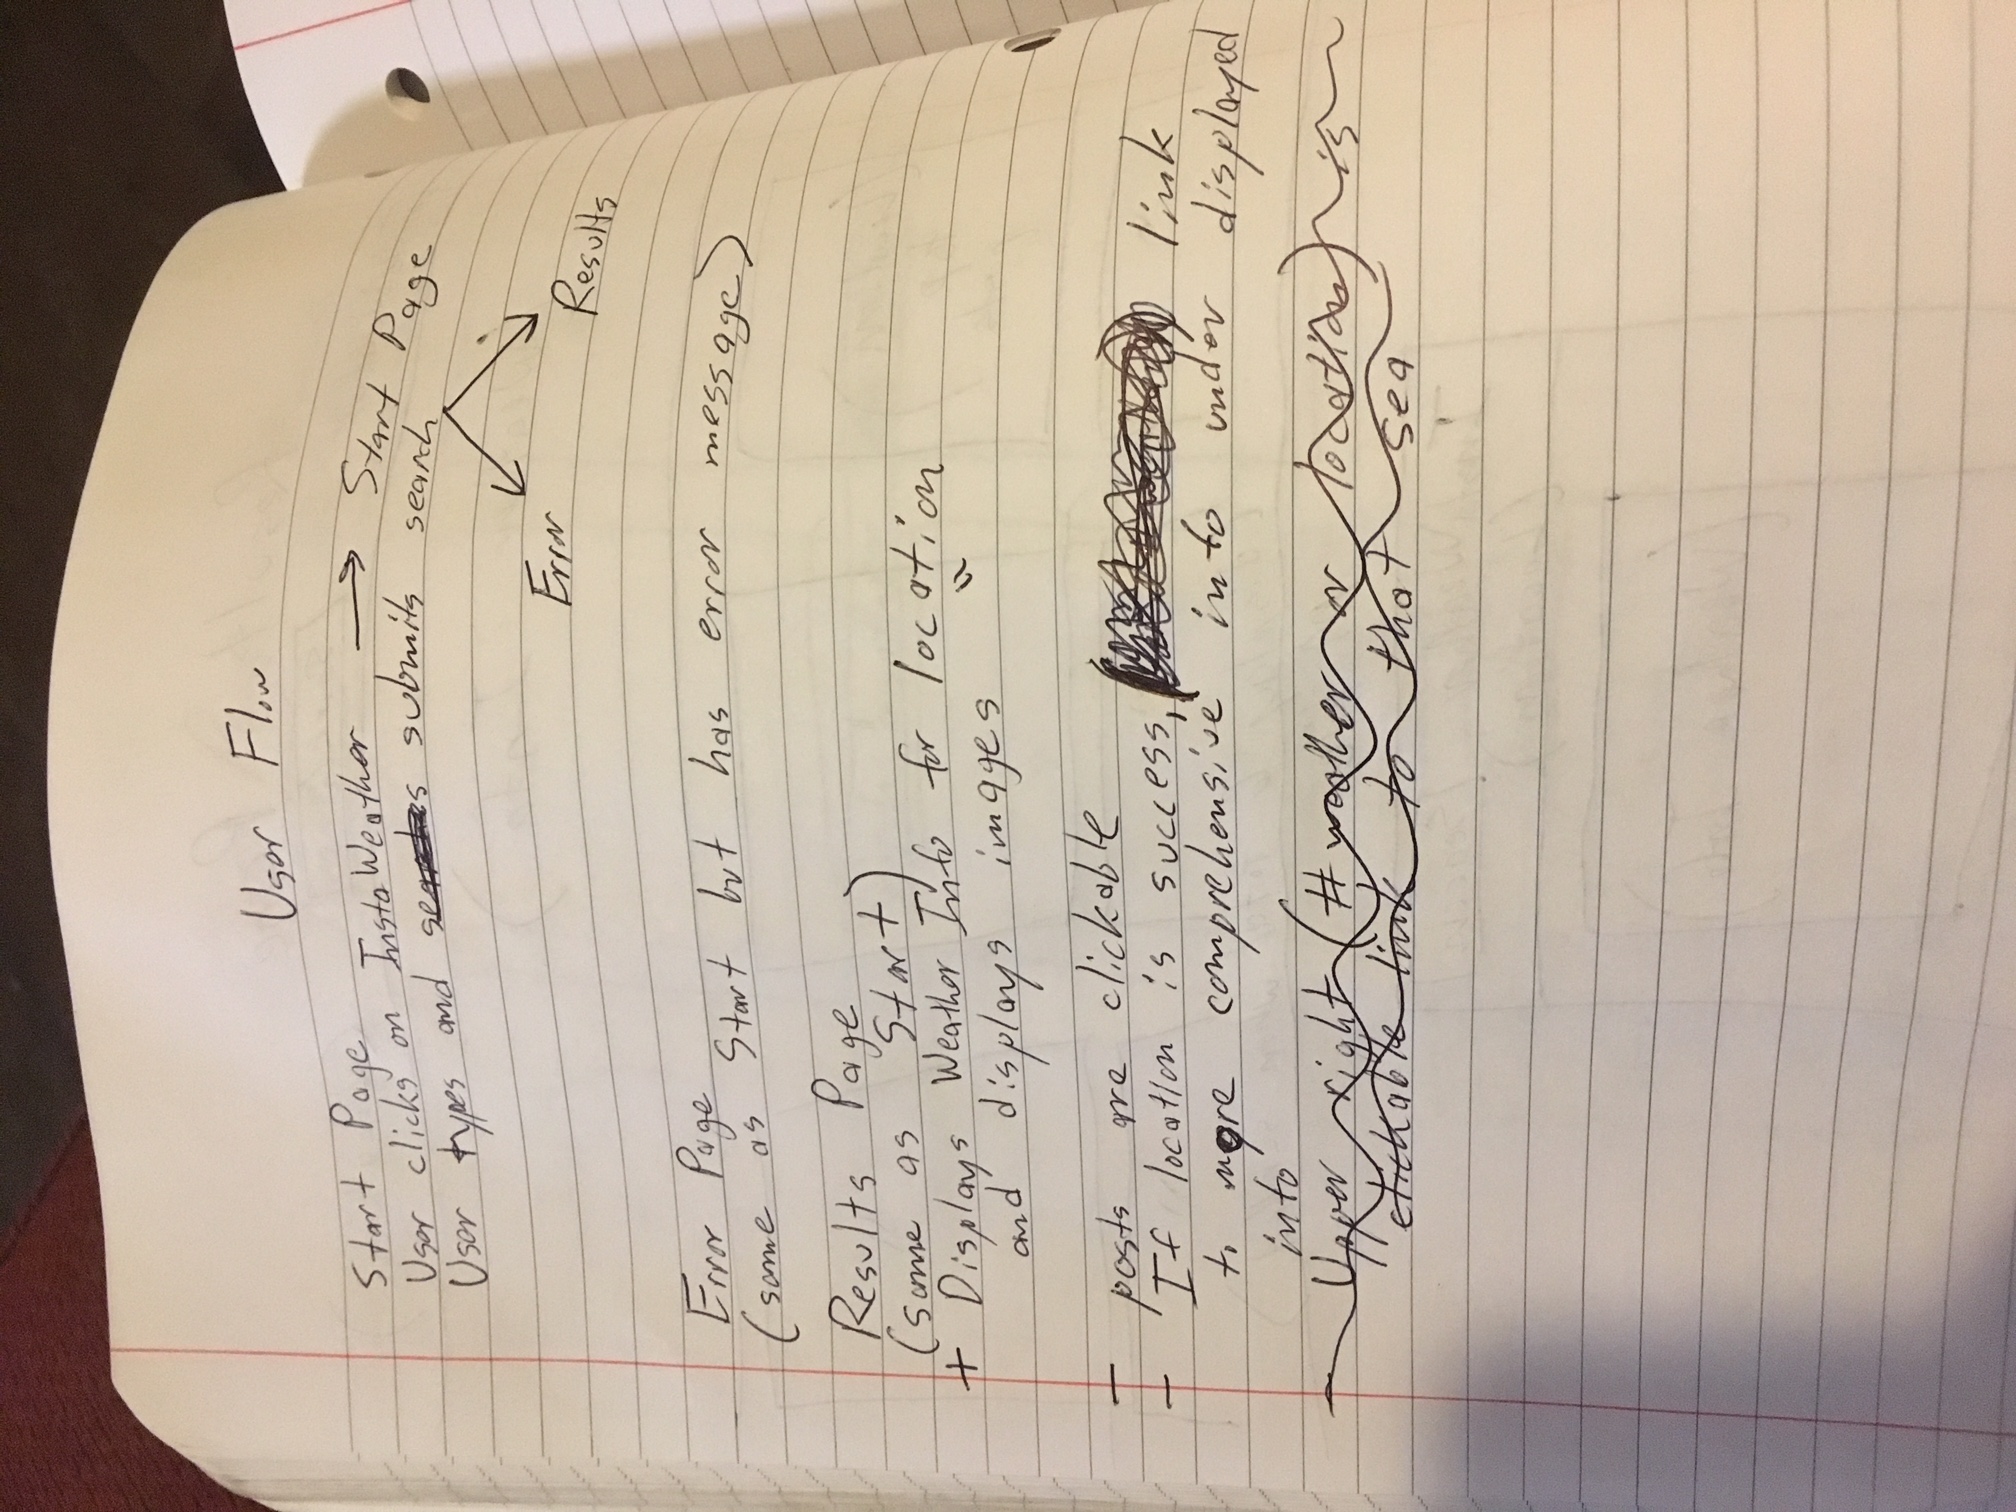 User Flow
Start Page
User clicks on InstaWeather → Start Page
User types and searches submits search
Error
Results
Error Page
(same as Start but has error message)
Results Page
(same as Start)
+ Displays Weather Info for location
and displays images "
- posts are clickable
- If location is success, link
to more comprehensive info under displayed
info
- Upper right (#weather or location) is
clickable link to that sea